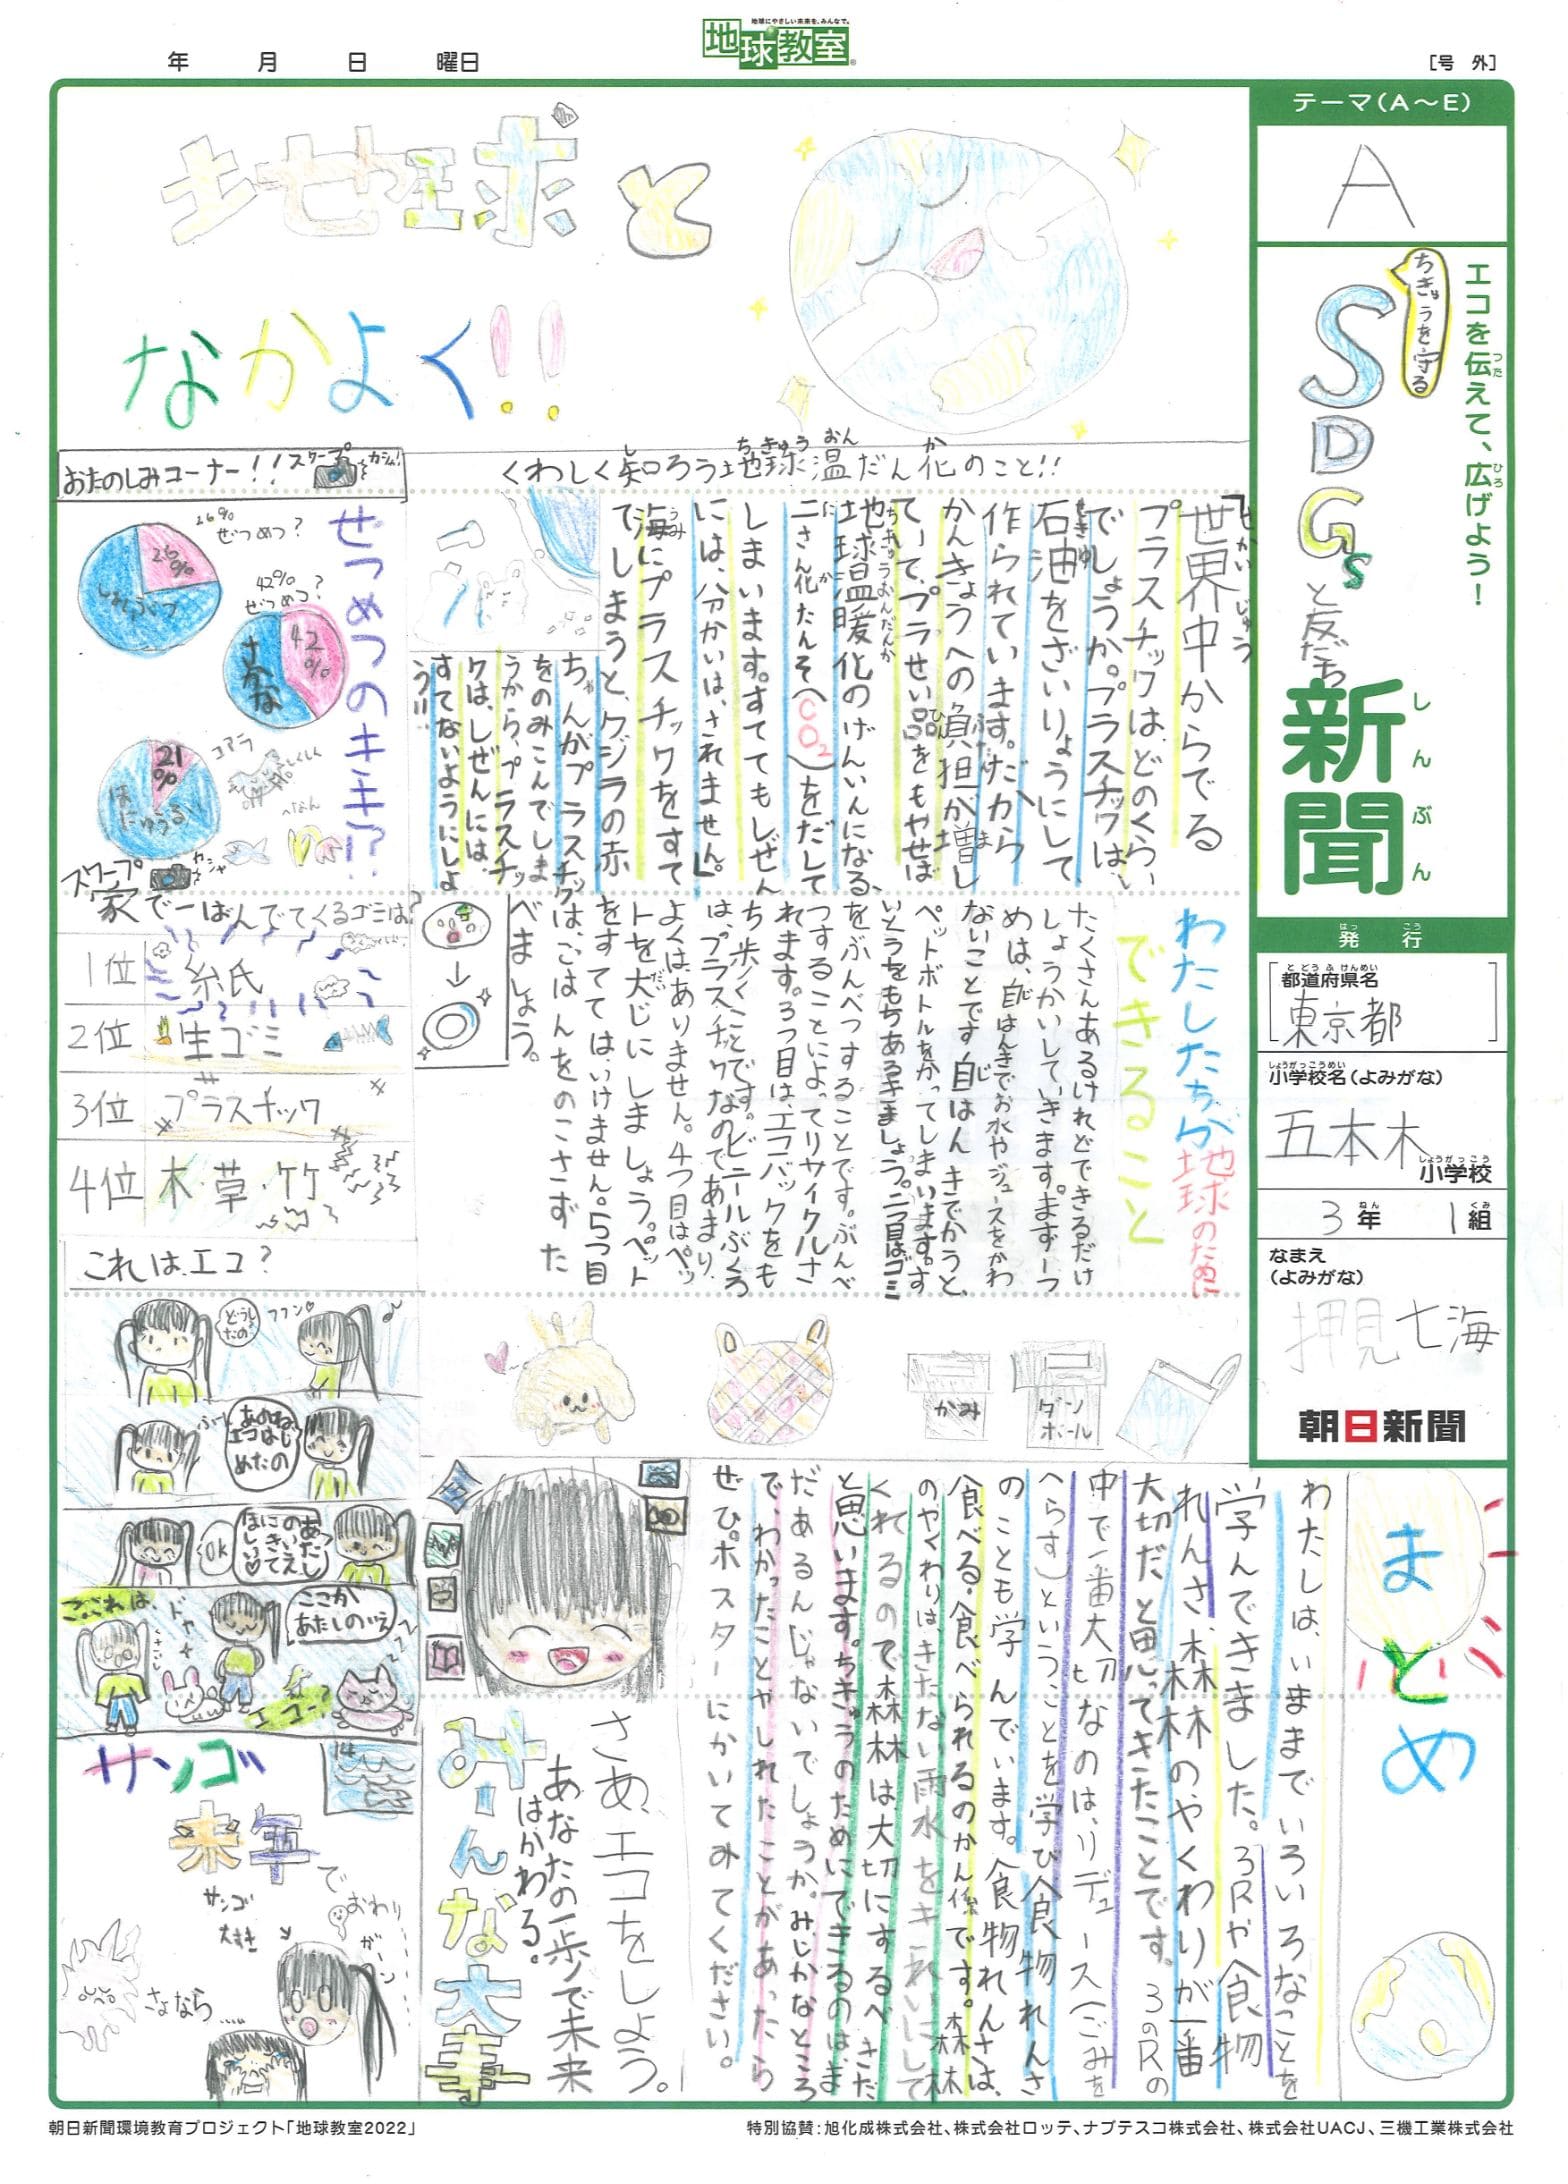 地球にやさしい未来を、みんなで。
地球教室
年 月 日 曜日
［号 外］
テーマ（A～E）
A
エコを伝えて、広げよう！
つた
ひろ
ちきゅうを守る
SDGs
と友だち
新聞
しんぶん
発行
はっこう
都道府県名
とどうふけんめい
東京都
小学校名（よみがな）
しょうがっこうめい
五本木
小学校
しょうがっこう
3年 1組
ねん くみ
なまえ
（よみがな）
押見七海
朝日新聞
地球と
なかよく!!
くわしく知ろう地球温だん化のこと!!
し ちきゅう おん か
「世界中からでる
せかいじゅう
プラスチックは、どのくらい
でしょうか。プラスチックは、
石油をざいりょうにして、
せきゆ
作られています。だから
かんきょうへの負担が増し
ふたん ま
ていて、プラせい品をもやせば
ひん
地球温暖化のげんいんになる、
ちきゅうおんだんか
二さん化たんそ（CO2）をだして
に か
しまいます。すててもしぜん
には、分かいは、されません。」
海にプラスチックをすて
うみ
てしまうと、クジラの赤
ちゃんがプラスチック
をのみこんでしま
うから、プラスチッ
クは、しぜんには、
すてないようにしよ
う!!
わたしたちが地球のために
できること
たくさんあるけれどできるだけ
しょうかいしていきます。まず一つ
めは、自はんきでお水やジュースをかわ
じ
ないことです自はんきでかうと、
じ
ペットボトルをかってしまいます。す
いとうをもちあるきましょう。二つ目はゴミ
をぶんべつすることです。ぶんべ
つすることによってリサイクルさ
れます。3つ目は、エコバックをも
ち歩くことです。ビニールぶくろ
は、プラスチックなのであまり、
よくは、ありません。4つ目はペッ
トを大じにしましょう。ペット
だい
をすてては、いけません。5つ目
は、ごはんをのこさずた
べましょう。
おたのしみコーナー!!
スクープ
カシャ!
ぜつめつのキキ!?
26%
ぜつめつ？
26%
しょくぶつ
42%
ぜつめつ？
42%
さかな
21%
ほにゅうるい
コアラ
しくしく
スクープ
カシャ
家で一ばんでてくるゴミは？
1位 紙
2位 生ゴミ
3位 プラスチック
4位 木・草・竹
これは、エコ？
どうしたの？
フフン♡
あのね、エコはじめたの
あたしのいえにきてほしい♡
OK
ここがあたしのいえ
こ、これは、
ドヤ
エコー？
かみ
ダンボール
まとめ
わたしは、いままでいろいろなことを
学んできました。3Rや食物
れんさ、森林のやくわりが一番
大切だと思ってきたことです。3のRの
中で一番大切なのは、リデュース（ごみを
へらす）ということを学び食物れんさ
のことも学んでいます。食物れんさは、
食べる・食べられるのかん係です。森林
のやくわりは、きたない雨水をきれいにして
くれるので森林は大切にするべきだ
と思います。ちきゅうのためにできるのは、ま
だあるんじゃないでしょうか。みじかなところ
で、わかったことやしれたことがあったら
ぜひ。ポスターにかいてみてください。
さあ、エコをしよう。
あなたの一歩で未来
はかわる。
みーんな大事
サンゴ
14
来年で
おわり
サンゴ
大すき
ガーン
さよなら……
朝日新聞環境教育プロジェクト「地球教室2022」
特別協賛：旭化成株式会社、株式会社ロッテ、ナブテスコ株式会社、株式会社UACJ、三機工業株式会社